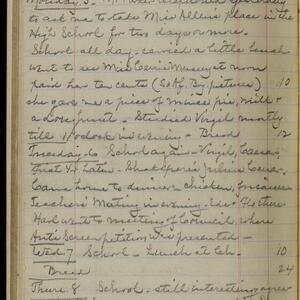 Monday, 5. Mr. telephoned yesterday
to ask me to take Miss Allen's place in the
High School for two days or more.
School all day. carried a little lunch
went to see Miss Carrie at noon
paid her ten cents (Soc. By. pictures) 10
she gave me a piece of mince pie, milk &
a doughnut - Studied Virgil mostly
till 11 o'clock in evening - Bread 12
Tuesday 6. School again - Virgil, Caesar,
First Yr. Latin - Shakespeare's Julius Caesar.
Came home to dinner - chicken,
Teachers' Meeting in evening. Ida &
Had went to meeting of Council, where
Anti Screen petition was presented -
Wed. 7 School - Lunch at Ch. 10
Bread 24
Thurs 8 School - still interesting,